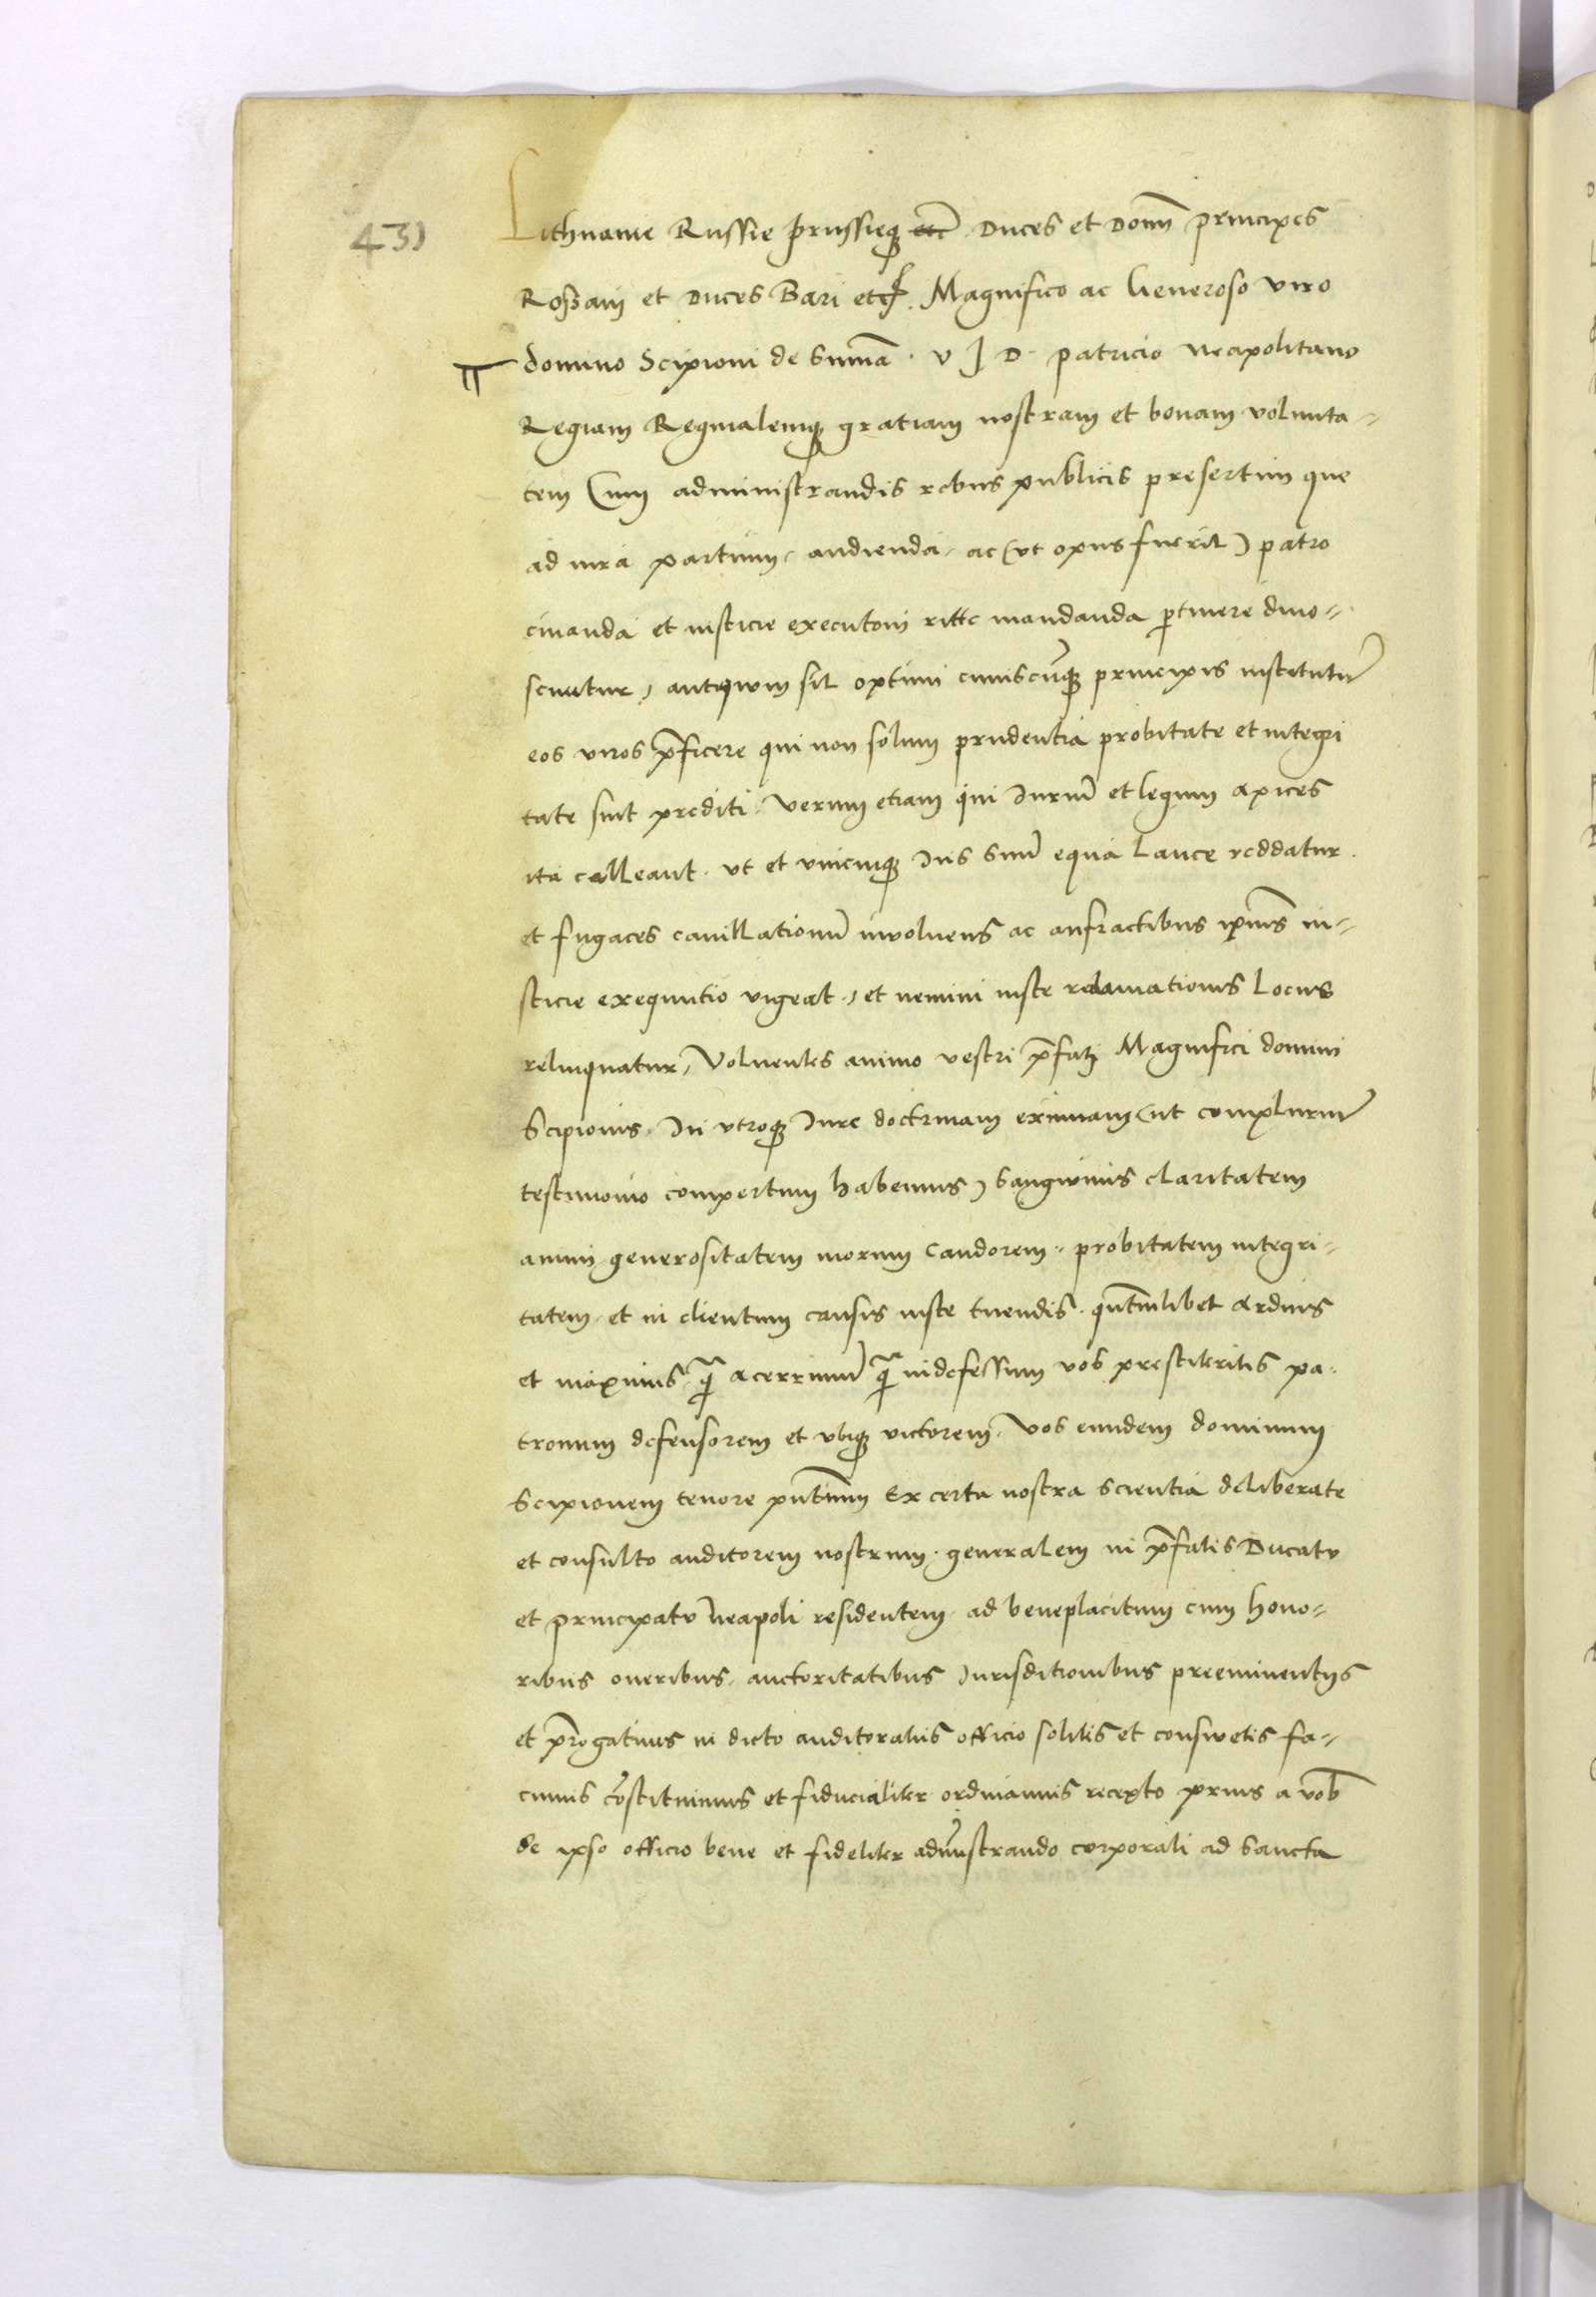 431
Lithuanie Russie Prussieq(ue) etc Duces et Domi(ni) Principes
Rossani et Duces Bari etc. Magnifico ac Generoso Viro
domino Scipioni de Summa . V J D . patricio Neapolitano
Regiam Reginalemq(ue) gratiam nostram et bonam volunta=
tem Cum administrandis rebus publicis presertim que
ad iura partium, audienda, ac (ut opus fuerit) patro
cinanda et iusticie executoni ritte mandanda p(er)tinere dino=
scuntur, antiquum sit optimi cuiuscu(n)q(ue) principis institutu(m)
eos viros p(re)ficere qui non solum prudentia probitate et integri
tate sint prediti. Verum etiam qui Juriu(m) et legum apices
ita calleant. ut et unicuiq(ue) Jus suu(m) equa lance reddatur.
et fugaces cavillationu(m) involuens ac anfractibus ip(s)ius iu=
sticie exequutio vigeat, et nemini iuste reclamationis locus
relinquatur, Volventes animo vestri p(re)fati Magnifici domini
Scipionis. In utroq(ue) Jure doctrinam eximiam (ut compluriu(m)
testimonio compertum habemus) Sanguinis claritatem
animi generositatem morum candorem. probitatem integri=
tatem. et in clientum causis iuste tuendis. qu(an)tumlibet arduis
et maximis. q(uam) acerrimu(m) q(uam) indefessum vos prestiteritis pa.
tronum defensorem et ubiq(ue) victorem. Vos eundem dominum
Scipionem tenore p(rese)ntium Ex certa nostra scientia deliberate
et consulto auditorem nostrum. generalem in p(re)fatis Ducatu
et principatu Neapoli residentem ad beneplacitum cum hono=
ribus oneribus. auctoritatibus Jurisditionibus preeminentijs
et p(re)rogativis in dicto auditoratus officio solitis et consuetis fa=
cimus co(n)stituimus et fiducialiter ordinamus recepto prius a vob(is)
de ipso officio bene et fideliter adm(in)istrando corporali ad sancta